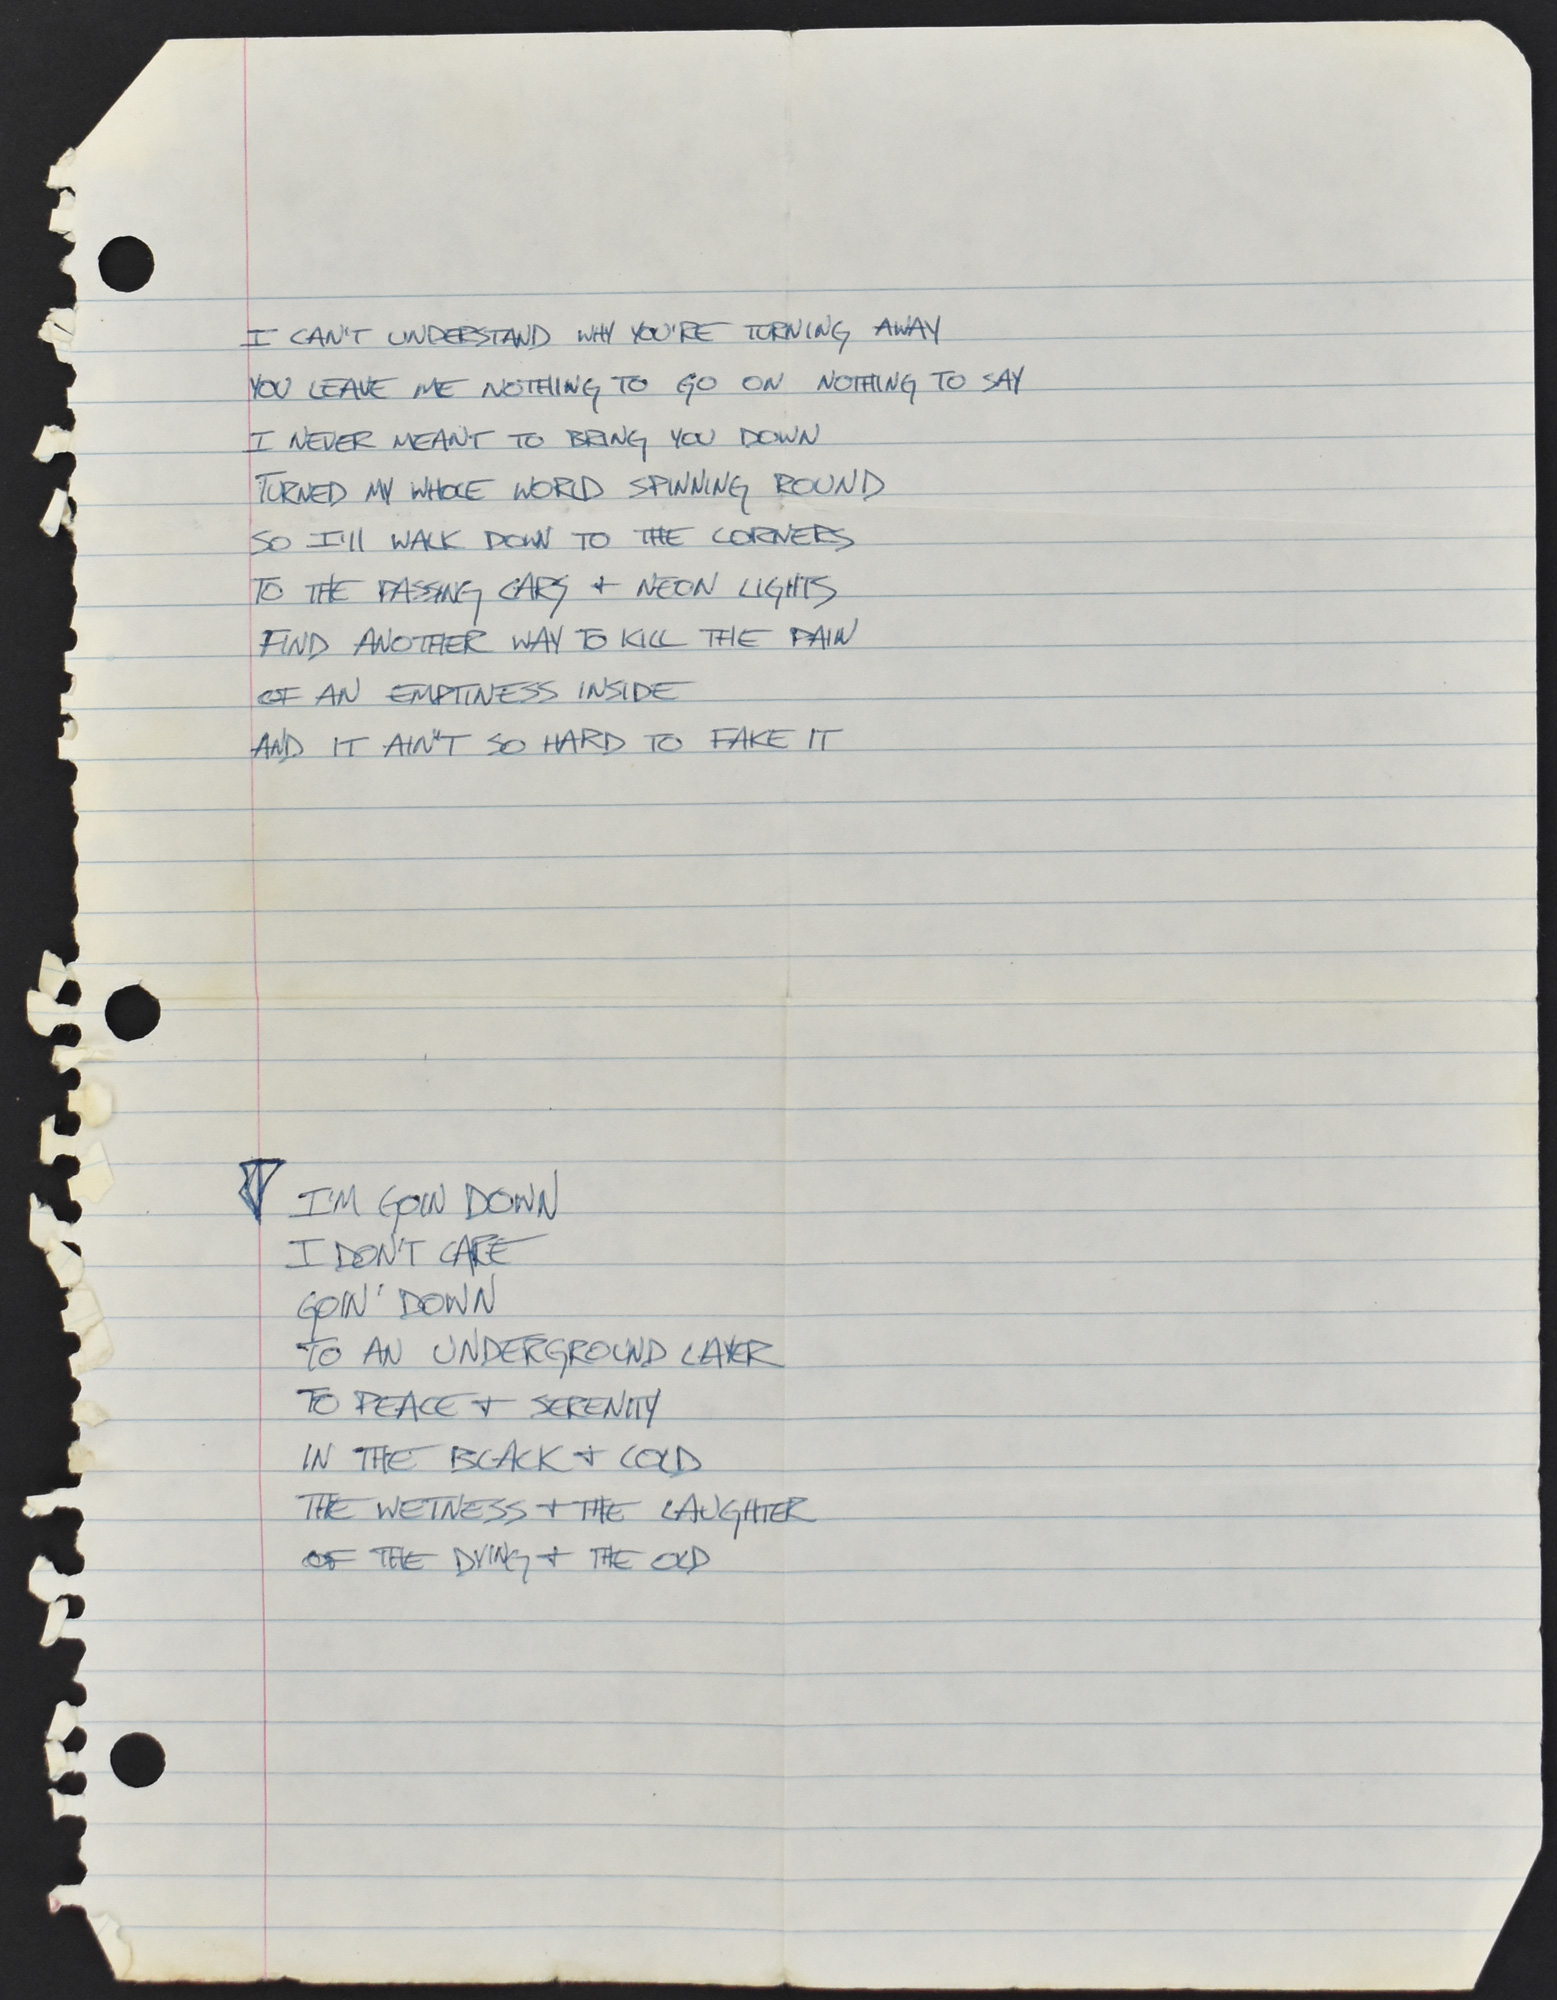 I CAN'T UNDERSTAND WHY YOU'RE TURNING AWAY
YOU LEAVE ME NOTHING TO GO ON NOTHING TO SAY
I NEVER MEANT TO BRING YOU DOWN
TURNED MY WHOLE WORLD SPINNING ROUND
SO I'll WALK DOWN TO THE CORNERS
TO THE PASSING CARS + NEON LIGHTS
FIND ANOTHER WAY TO KILL THE PAIN
OF AN EMPTINESS INSIDE
AND IT AIN'T SO HARD TO FAKE IT
I'M GOIN DOWN
I DON'T CARE
GOIN' DOWN
TO AN UNDERGROUND LAYER
TO PEACE + SERENITY
IN THE BLACK + COLD
THE WETNESS + THE LAUGHTER
OF THE DYING + THE OLD